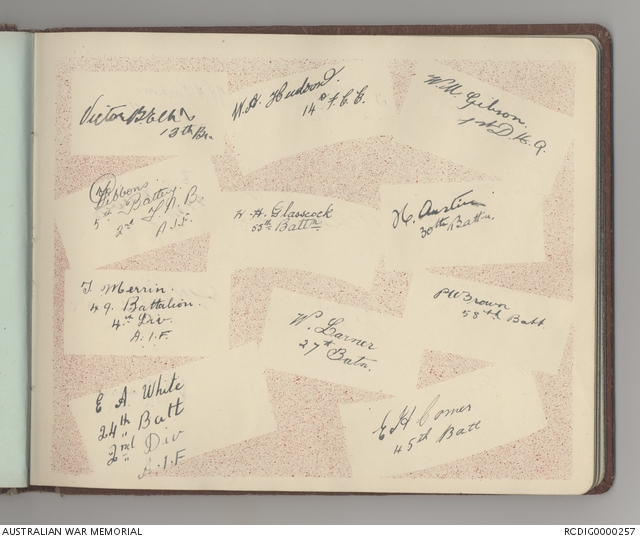 Victor
13th Bn.
W. H. Hudson
14th F.C.E.
W. W. Gibson.
1st D.H.Q.
Gibbons.
5th Battery
2nd T.M.B
A.I.F.
H. H. Glasscock
55th Battn
H. Austin
30th Battn.
T Merrin.
49. Battalion.
4th Div
A.I.F.
W. Larner
27th Batn.
P W Brown
58th Batt.
E A. White
24th Batt
2nd Div
A.I.F
E H Comer
45th Batt
AUSTRALIAN WAR MEMORIAL
RCDIG0000257